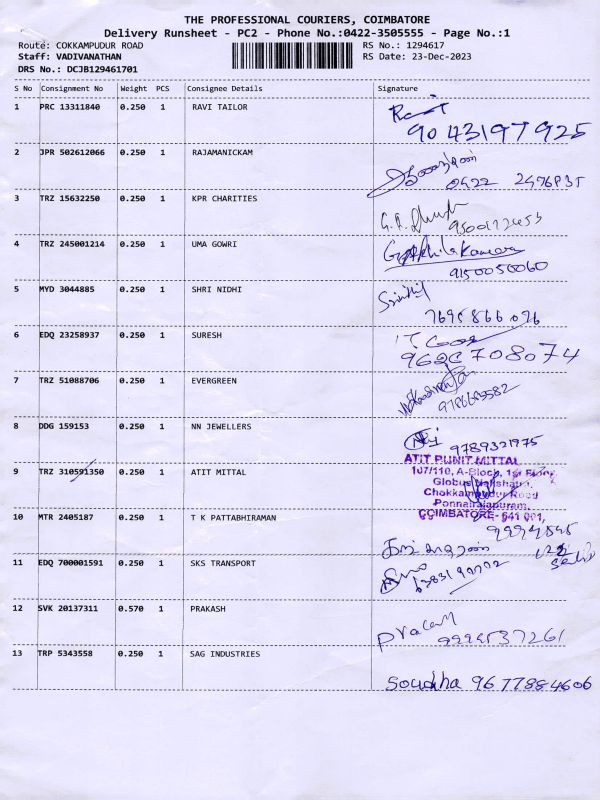 THE PROFESSIONAL COURIERS, COIMBATORE
Delivery Runsheet - PC2 - Phone No.:0422-3505555 - Page No.:1
Route: COKKAMPUDUR ROAD RS No.: 1294617
Staff: VADIVANATHAN RS Date: 23-Dec-2023
DRS No.: DCJB129461701
S No Consignment No Weight PCS Consignee Details Signature
1 PRC 13311840 0.250 1 RAVI TAILOR
9043197925
2 JPR 502612066 0.250 1 RAJAMANICKAM
0422
3 TRZ 15632250 0.250 1 KPR CHARITIES
G.R.
4 TRZ 245001214 0.250 1 UMA GOWRI
9150050060
5 MYD 3044885 0.250 1 SHRI NIDHI
Srinidhi
7695866096
6 EDQ 23258937 0.250 1 SURESH
708074
7 TRZ 51088706 0.250 1 EVERGREEN
8 DDG 159153 0.250 1 NN JEWELLERS
9789321975
ATIT PUNIT MITTAL
9 TRZ 310591350 0.250 1 ATIT MITTAL
107/110, A-Block, 1st Floor,
Globus Nakshatra,
Chokkampudur Road
Ponnairajapuram,
COIMBATORE- 641 001,
10 MTR 2405187 0.250 1 T K PATTABHIRAMAN
11 EDQ 700001591 0.250 1 SKS TRANSPORT
12 SVK 20137311 0.570 1 PRAKASH
13 TRP 5343558 0.250 1 SAG INDUSTRIES
Soudha 9677884606